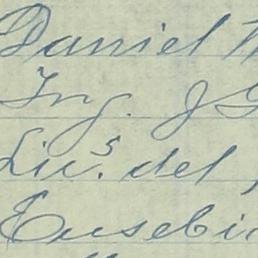 Daniel
Ing. J
Liu.s del
Eusebi